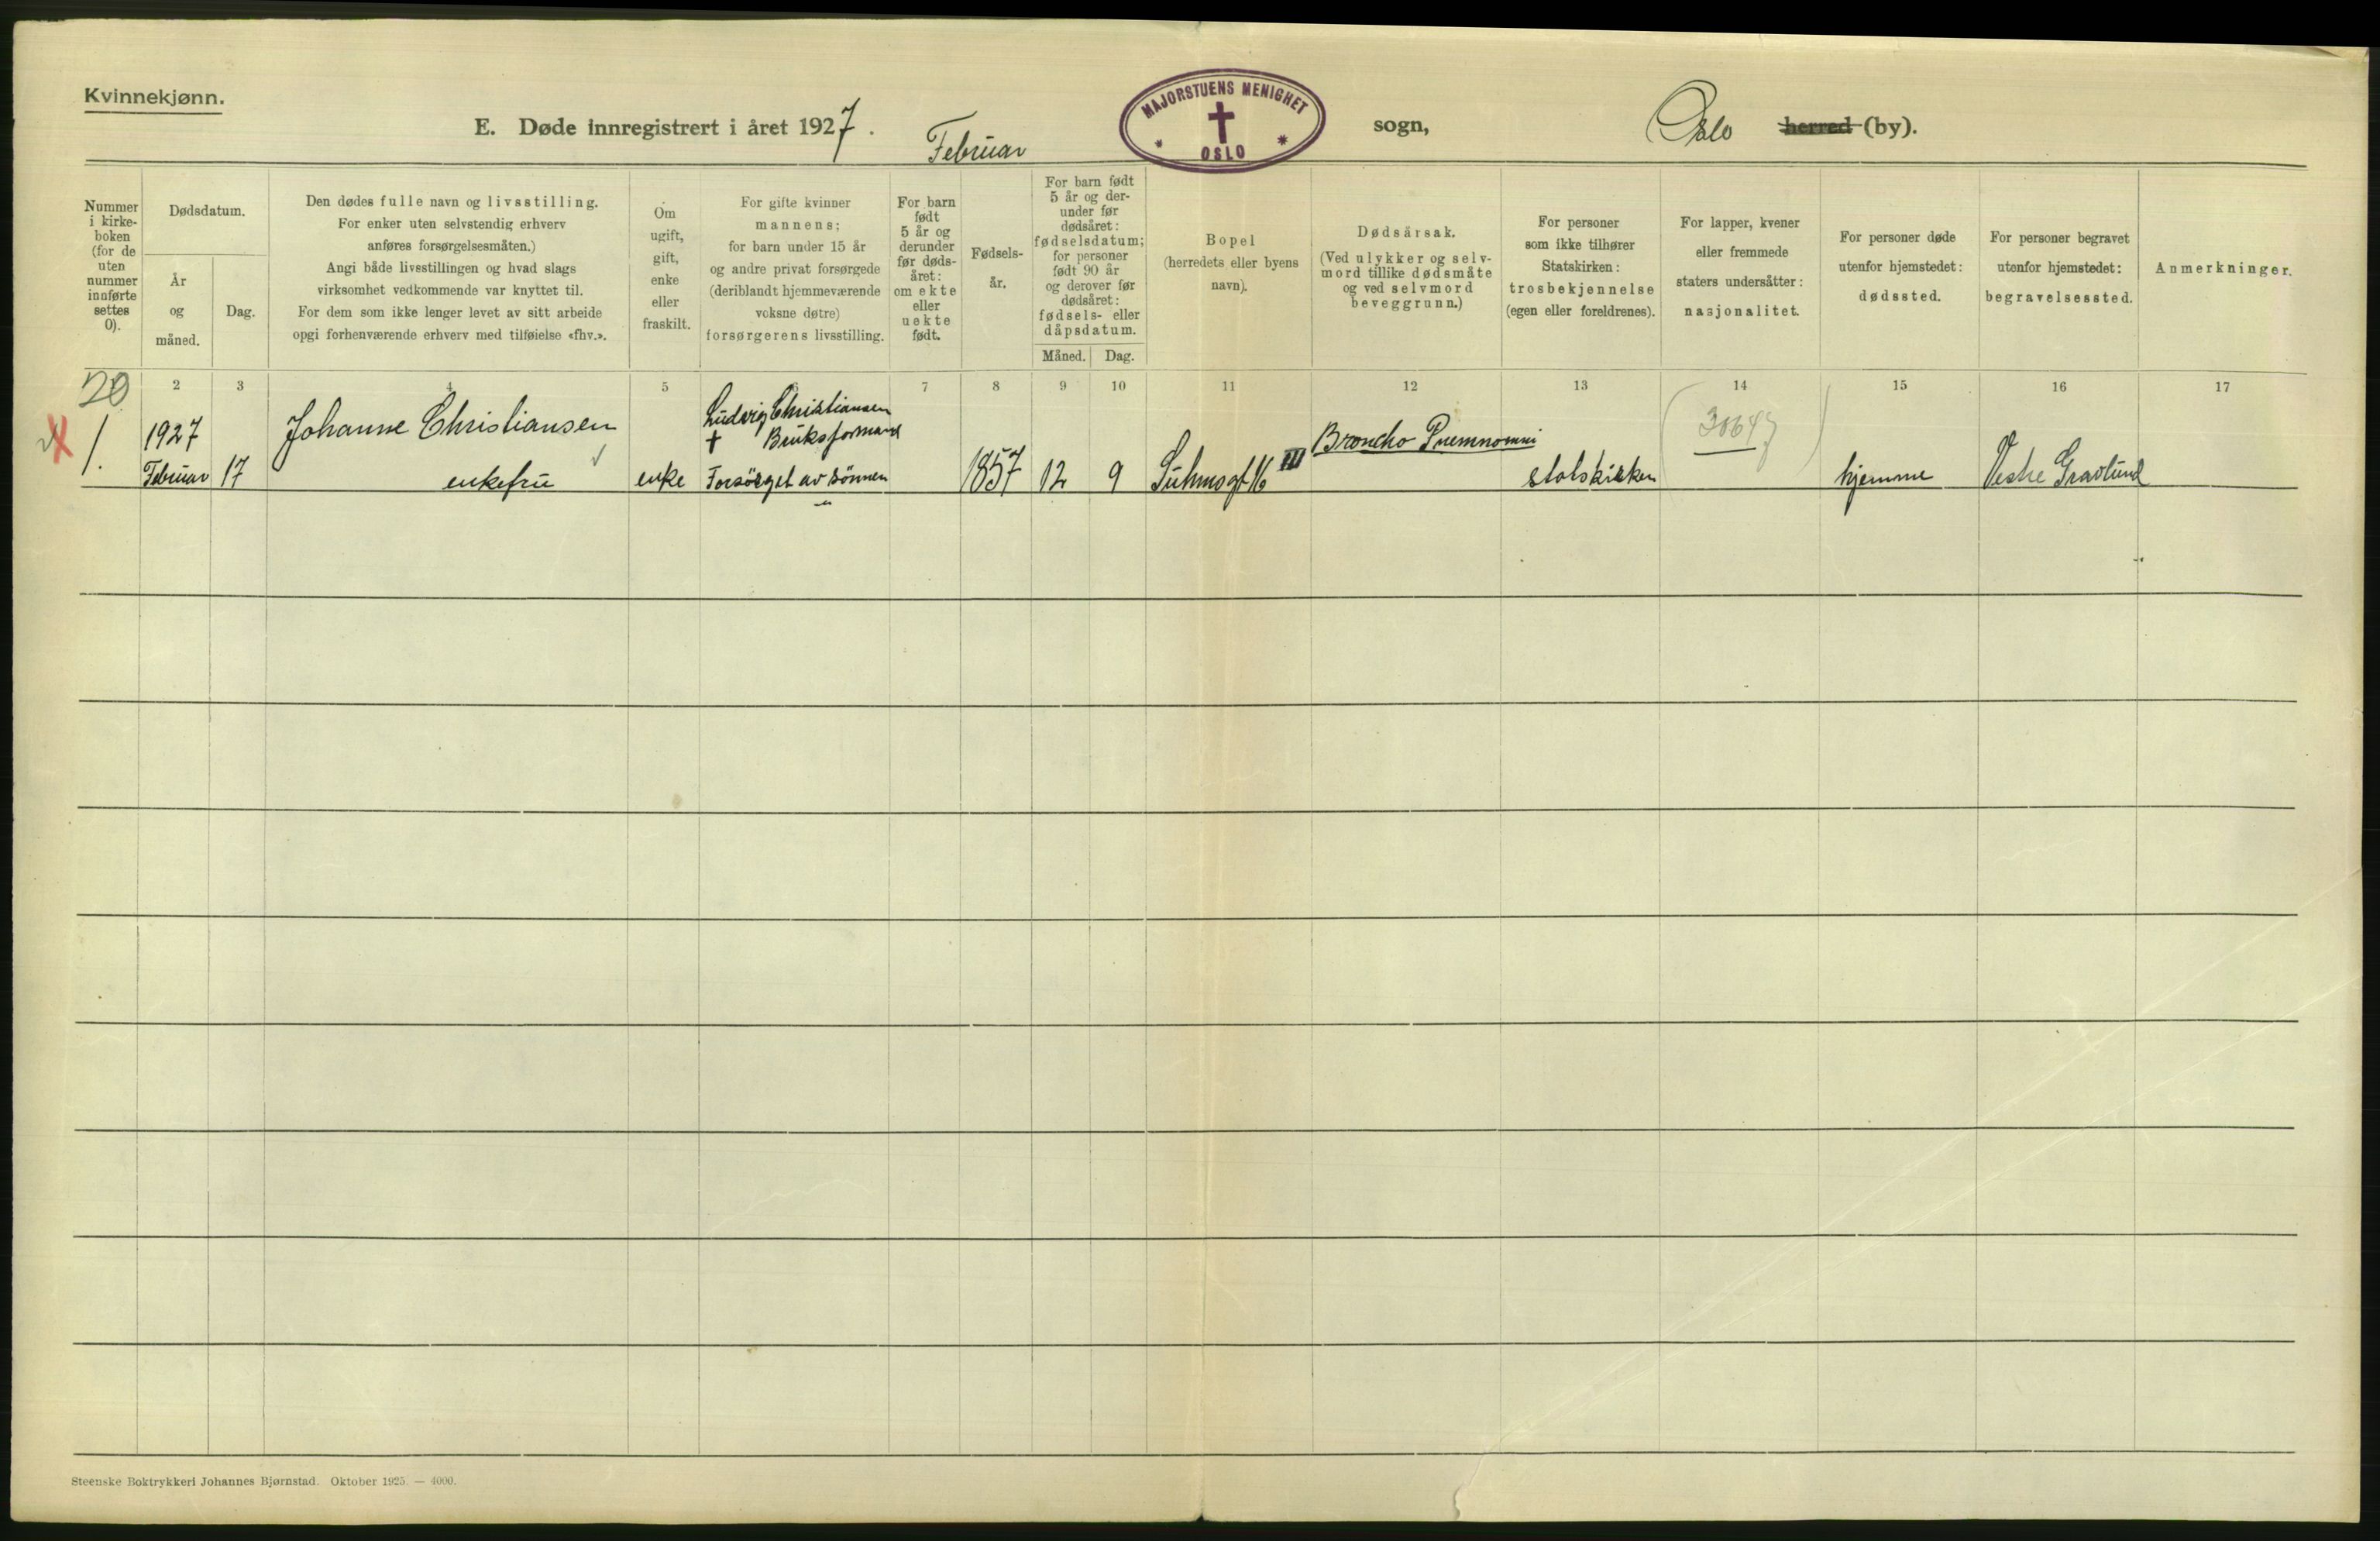 Kvinnekjønn.
E. Døde innregistrert i året 1927.
Februar
MAJORSTUENS MENIGHET
* OSLO *
sogn,
Oslo herred (by).
Nummer
i kirke-
boken
(for de
uten
nummer
innførte
settes
0).
Dødsdatum.
År
og
måned.
Dag.
Den dødes fulle navn og livsstilling.
For enker uten selvstendig erhverv
anføres forsørgelsesmåten.)
Angi både livsstillingen og hvad slags
virksomhet vedkommende var knyttet til.
For dem som ikke lenger levet av sitt arbeide
opgi forhenværende erhverv med tilføielse «fhv.».
Om
ugift,
gift,
enke
eller
fraskilt.
For gifte kvinner
mannens;
for barn under 15 år
og andre privat forsørgede
(deriblandt hjemmeværende
voksne døtre)
forsørgerens livsstilling.
For barn
født
5 år og
derunder
før døds-
året:
om ekte
eller
uekte
født.
Fødsels-
år.
For barn født
5 år og der-
under før
dødsåret:
fødselsdatum;
for personer
født 90 år
og derover før
dødsåret:
fødsels- eller
dåpsdatum.
Måned.
Dag.
Bopel
(herredets eller byens
navn).
Dødsårsak.
(Ved ulykker og selv-
mord tillike dødsmåte
og ved selvmord
beveggrunn.)
For personer
som ikke tilhører
Statskirken:
trosbekjennelse
(egen eller foreldrenes).
For lapper, kvener
eller fremmede
staters undersåtter:
nasjonalitet.
For personer døde
utenfor hjemstedet:
dødssted.
For personer begravet
utenfor hjemstedet:
begravelsessted.
Anmerkninger.
20 2 3 4 5 7 8 9 10 11 12 13 14 15 16 17
1.
1927
Februar 17
Johanne Christiansen
enkefru
enke
Ludvig Christiansen
† Bruksformand
Forsörget av sönnen
1857 12 9
Suhmsgt 16 III
Broncho Pnemnomni
statskirken
hjemme
Vestre Gravlund
Steenske Boktrykkeri Johannes Bjørnstad. Oktober 1925. — 4000.